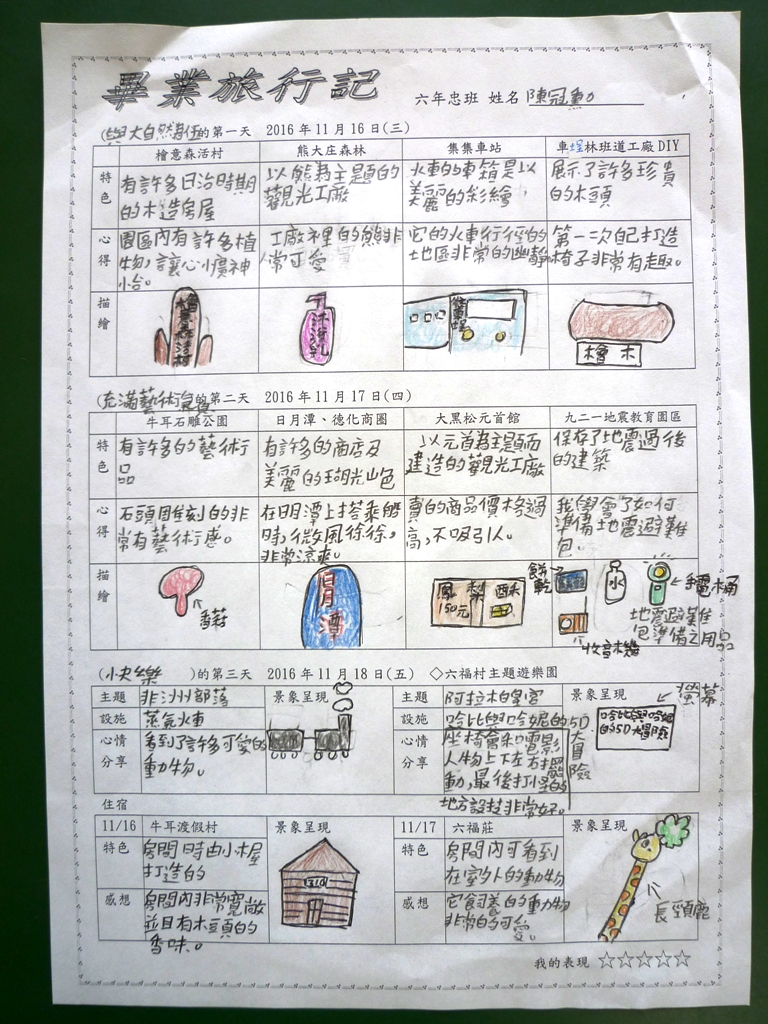 畢業旅行記
六年忠班 姓名 陳冠勳
(與大自然為伍的第一天 2016年11月16日(三)
檜意森活村 熊大庄森林 集集車站 車埕林班道工廠DIY
特色 有許多日治時期的木造房屋 以熊為主題的觀光工廠 火車的車箱是以美麗的彩繪 展示了許多珍貴的木頭
心得 園區內有許多植物,讓心曠神怡。 工廠裡的熊非常可愛 它的火車行徑的地區非常的幽靜 第一次自己打造椅子非常有趣。
描繪 檜意森活村 沐浴乳 檜木
(充滿藝術氣質的第二天 2016年11月17日(四)
牛耳石雕公園 日月潭、德化商圈 大黑松元首館 九二一地震教育園區
特色 有許多的藝術品 有許多的商店及美麗的瑚光山色 以元首為主題而建造的觀光工廠 保存了地震過後的建築
心得 石頭雕刻的非常有藝術感。 在日月潭上搭乘船時,微風徐徐,非常涼爽。 賣的商品價格過高,不吸引人。 我學會了如何準備地震避難包。
描繪 香菇 日月潭 鳳梨酥 150元 餅乾 水 手電桶 收音機 地震避難包準備之用品
(小快樂 )的第三天 2016年11月18日(五) ◇六福村主題遊樂園
主題 非洲部落 景象呈現 主題 阿拉木皇宮 景象呈現 螢幕
設施 蒸氣火車 設施 哈比與哈妮的5D大冒險 哈比與哈妮的5D大冒險
心情分享 看到了許多可愛的動物。 心情分享 座椅會和電影人物上下左右擺動,最後打怪的地方設技非常好。
住宿
11/16 牛耳渡假村 景象呈現 11/17 六福莊 景象呈現
特色 房間時由小木屋打造的 310 特色 房間內可看到在室外的動物
感想 房間內非常寬敞並且有木頭的香味。 感想 它飼養的動物非常的可愛。 長頸鹿
我的表現 ☆☆☆☆☆